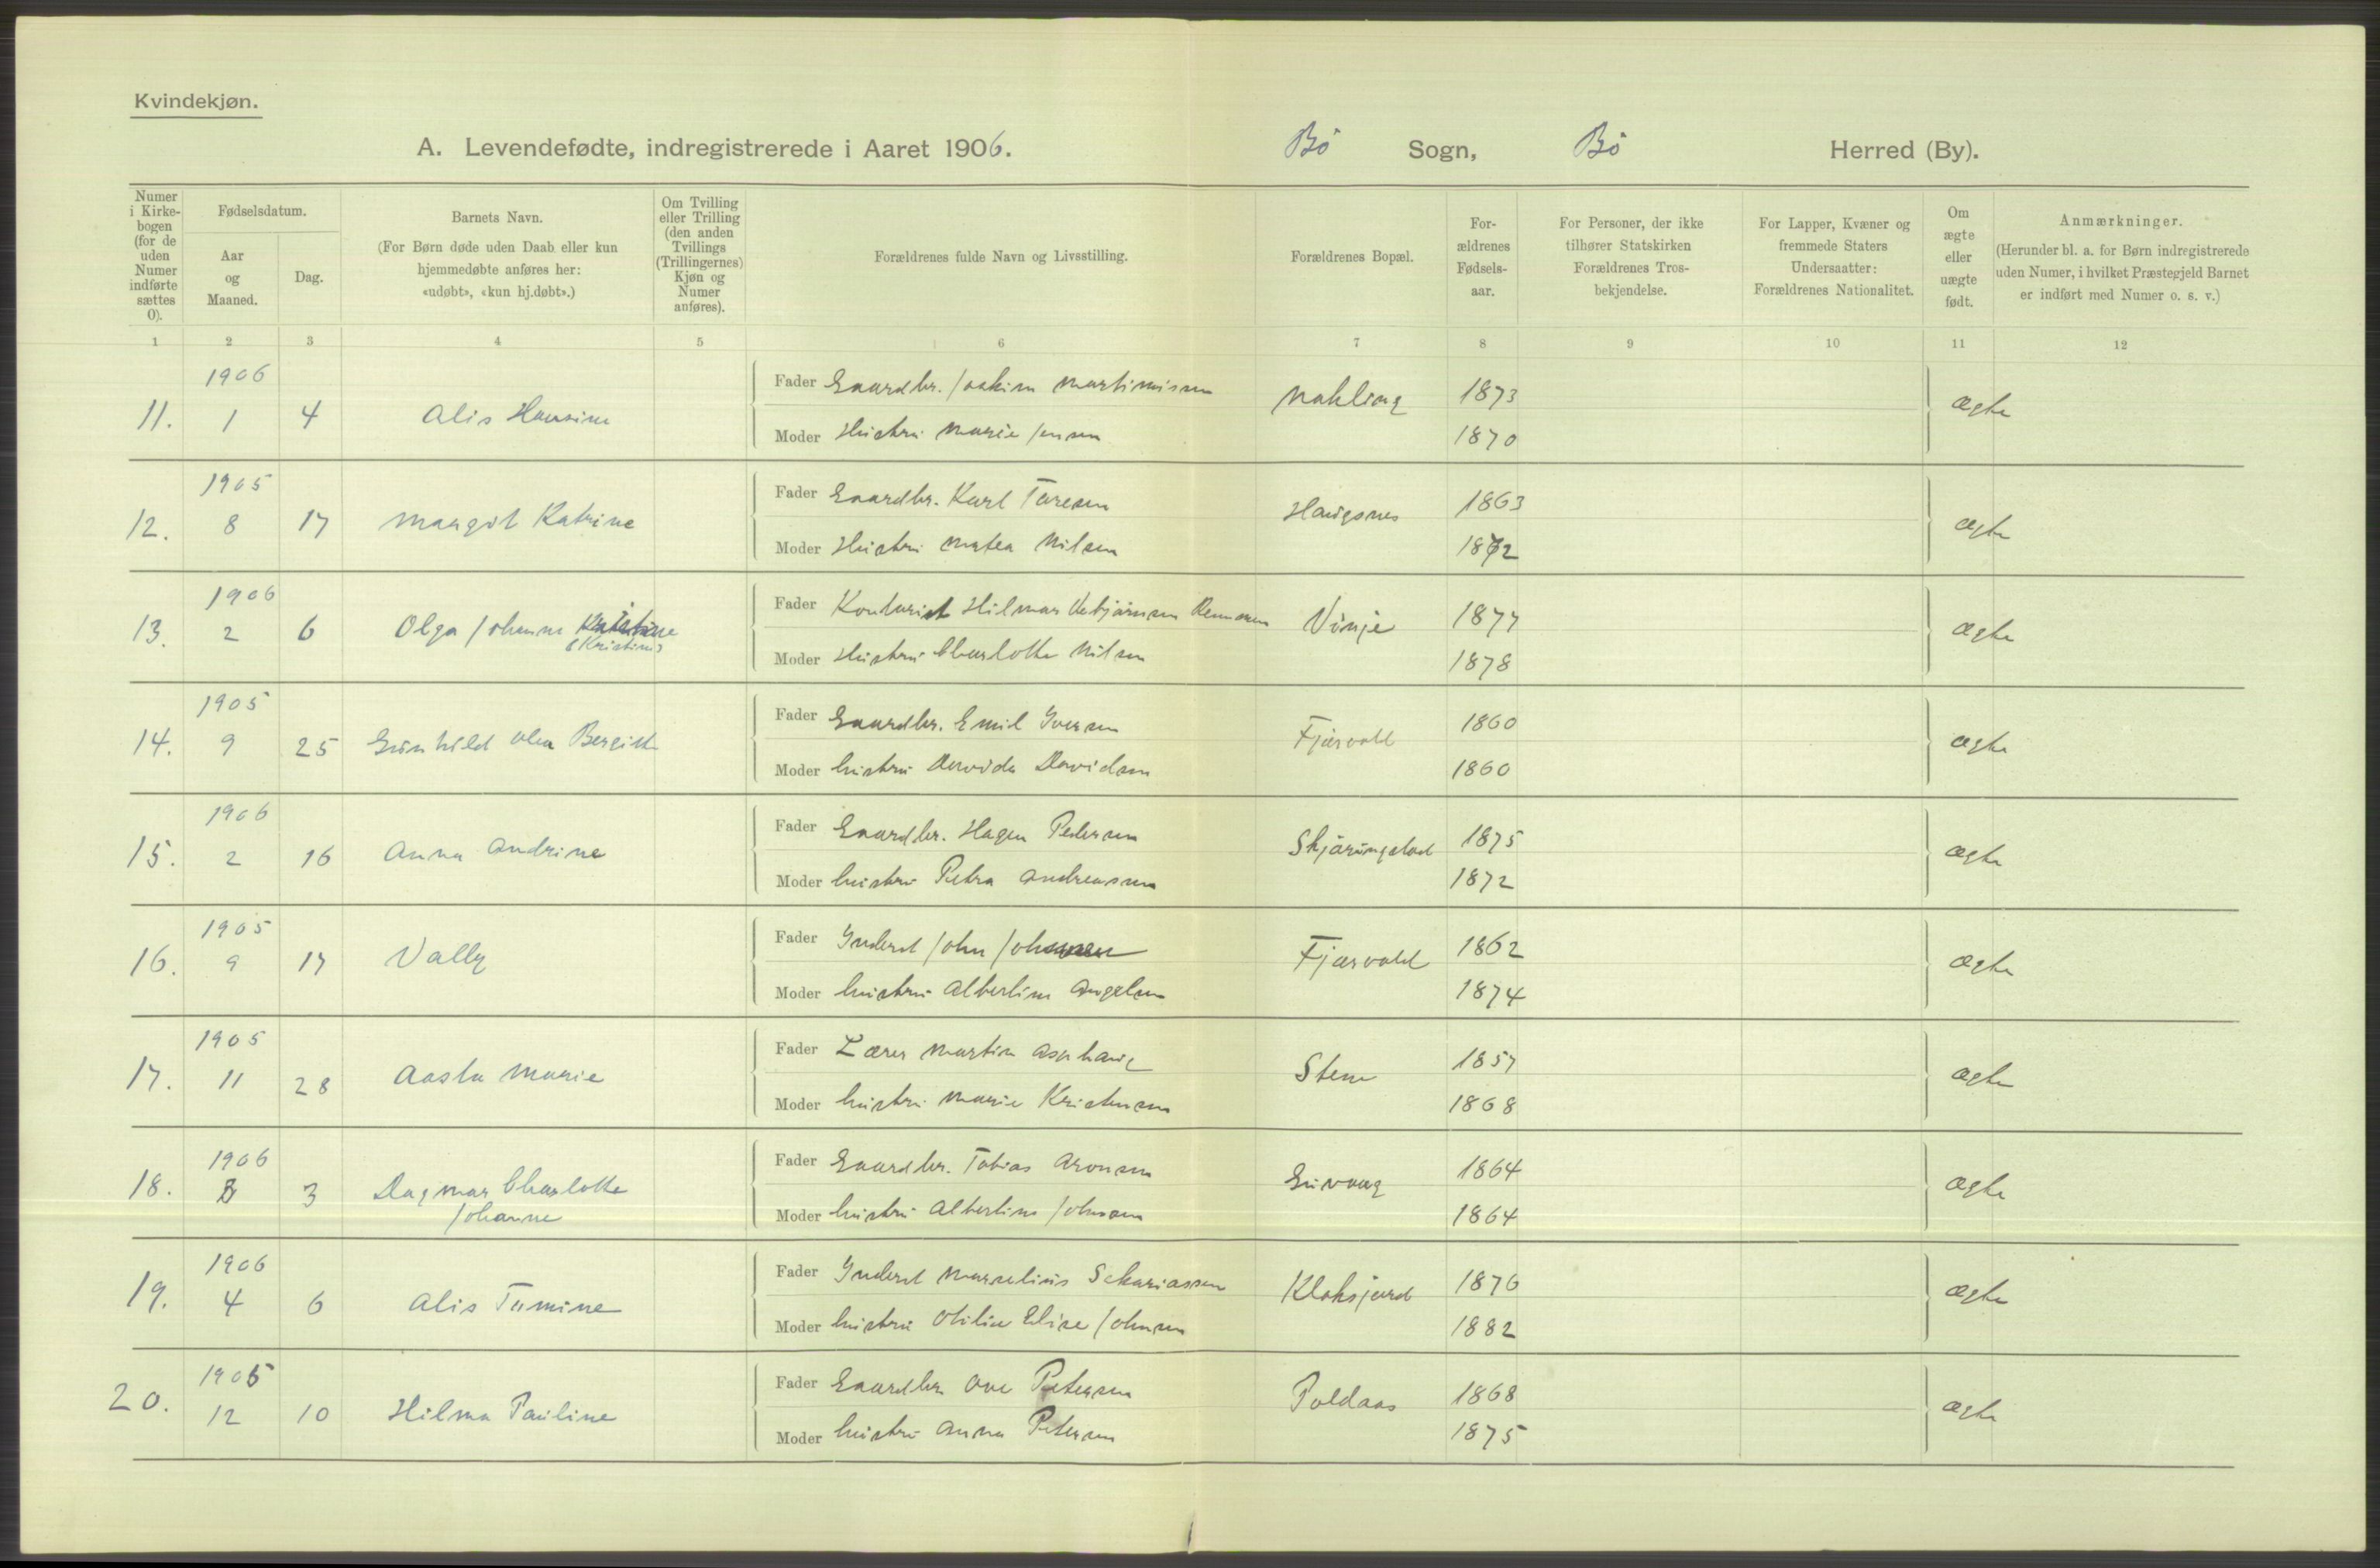 Kvindekjøn.
A. Levendefødte, indregistrerede i Aaret 1906. Bö Sogn, Bö Herred (By).
Numer i Kirkebogen (for de uden Numer indførte sættes 0).
Fødselsdatum.
Aar og Maaned.
Dag.
Barnets Navn.
(For Børn døde uden Daab eller kun hjemmedøbte anføres her: «udøbt», «kun hj.døbt».)
Om Tvilling eller Trilling (den anden Tvillings (Trillingernes) Kjøn og Numer anføres).
Forældrenes fulde Navn og Livsstilling.
Forældrenes Bopæl.
Forældrenes Fødselsaar.
For Personer, der ikke tilhører Statskirken Forældrenes Trosbekjendelse.
For Lapper, Kvæner og fremmede Staters Undersaatter: Forældrenes Nationalitet.
Om ægte eller uægte født.
Anmærkninger.
(Herunder bl. a. for Børn indregistrerede uden Numer, i hvilket Præstegjeld Barnet er indført med Numer o. s. v.)
1 2 3 4 5 6 7 8 9 10 11 12
1906
11. 1 4 Alis Hansine Fader Gaardbr. Joakim Martinussen Nykling 1873 ægte
Moder Hustru Marie Jensen 1870
1905
12. 8 17 Margot Katrine Fader Gaardbr. Karl Toresen Haugsnes 1863 ægte
Moder Hustru Matea Nilsen 1872
1906
13. 2 6 Olga Johanne Kristine Fader Kontorist Hilmar Vinje 1877 ægte
(Kristine) Moder Hustru Charlotte Nilsen 1878
1905
14. 9 25 Gunhild Olea Bergitte Fader Gaardbr. Emil Iversen Fjærvold 1860 ægte
Moder hustru Davida Davidsen 1860
1906
15. 2 16 Anna Andrine Fader Gaardbr. Hagen Pedersen Skjæringstad 1875 ægte
Moder hustru Petra Andreassen 1872
1905
16. 9 17 Vally Fader Inderst John Johansen Fjærvold 1862 ægte
Moder hustru Albertine Angelsen 1874
1905
17. 11 28 Aasta Marie Fader Lærer Martin Asphaug Stene 1857 ægte
Moder hustru Marie Kristensen 1868
1906
18. 3 3 Dagmar Charlotte Fader Gaardbr. Tobias Aronsen Guvaag 1864 ægte
Johanne Moder hustru Albertine Johnsen 1864
1906
19. 4 6 Alis Tumine Fader Inderst Marselius Sakariassen Klaksjord 1876 ægte
Moder hustru Otilie Elise Johnsen 1882
1905
20. 12 10 Hilma Pauline Fader Gaardbr. Ove Petersen Poldaas 1868 ægte
Moder hustru Anna Petersen 1875